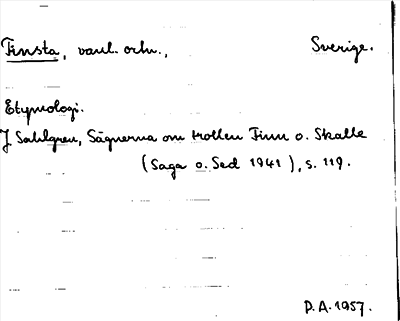 Finsta, vanl. ortn., Sverige.
Etymologi.
J Sahlgren, Sägnerna om trollen Finn o. Skalle
(Saga o. Sed 1941), s. 119.
P.A. 1957.